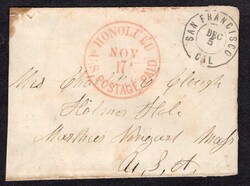 HONOLULU
U.S. POSTAGE PAID
NOV
17
SAN FRANCISCO
CAL
DEC
5
Mrs Clough
Holmes Hole
Marthas Vineyard Mass
U.S.A.